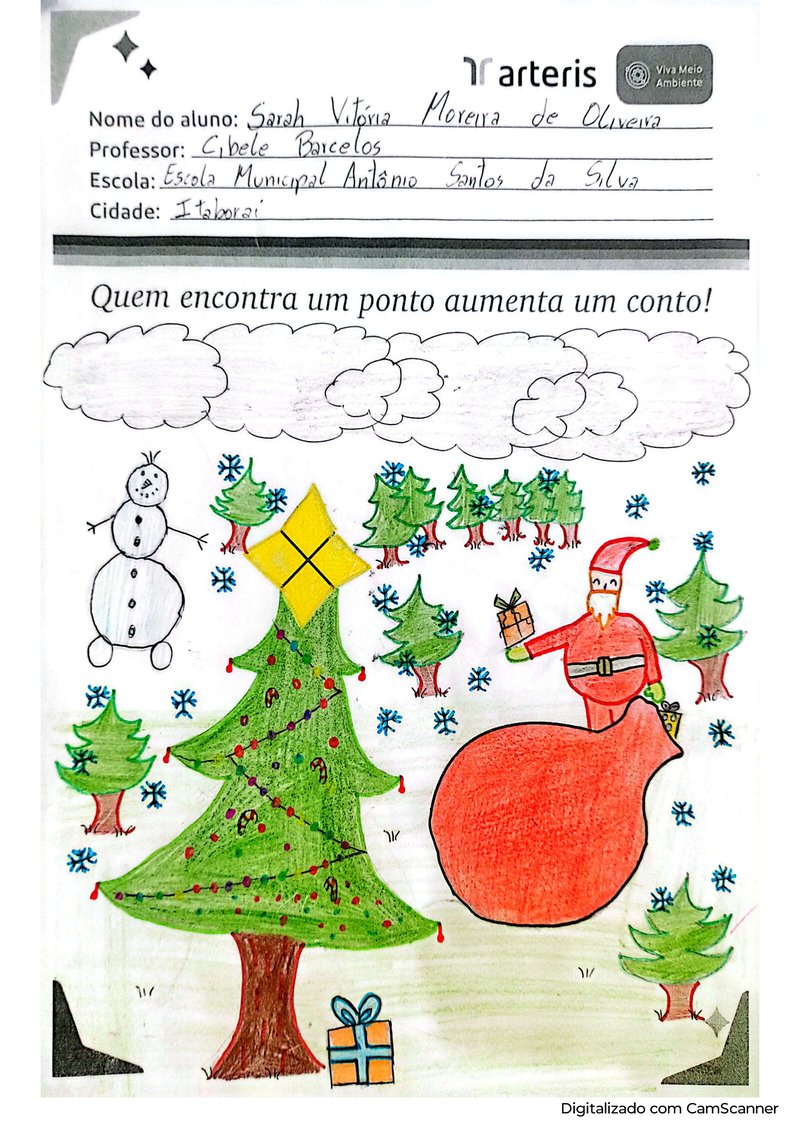 arteris
Viva Meio
Ambiente
Nome do aluno: Sarah Vitória Moreira de Oliveira
Professor: Cibele Barcelos
Escola: Escola Municipal Antônio Santos da Silva
Cidade: Itaboraí
Quem encontra um ponto aumenta um conto!
Digitalizado com CamScanner